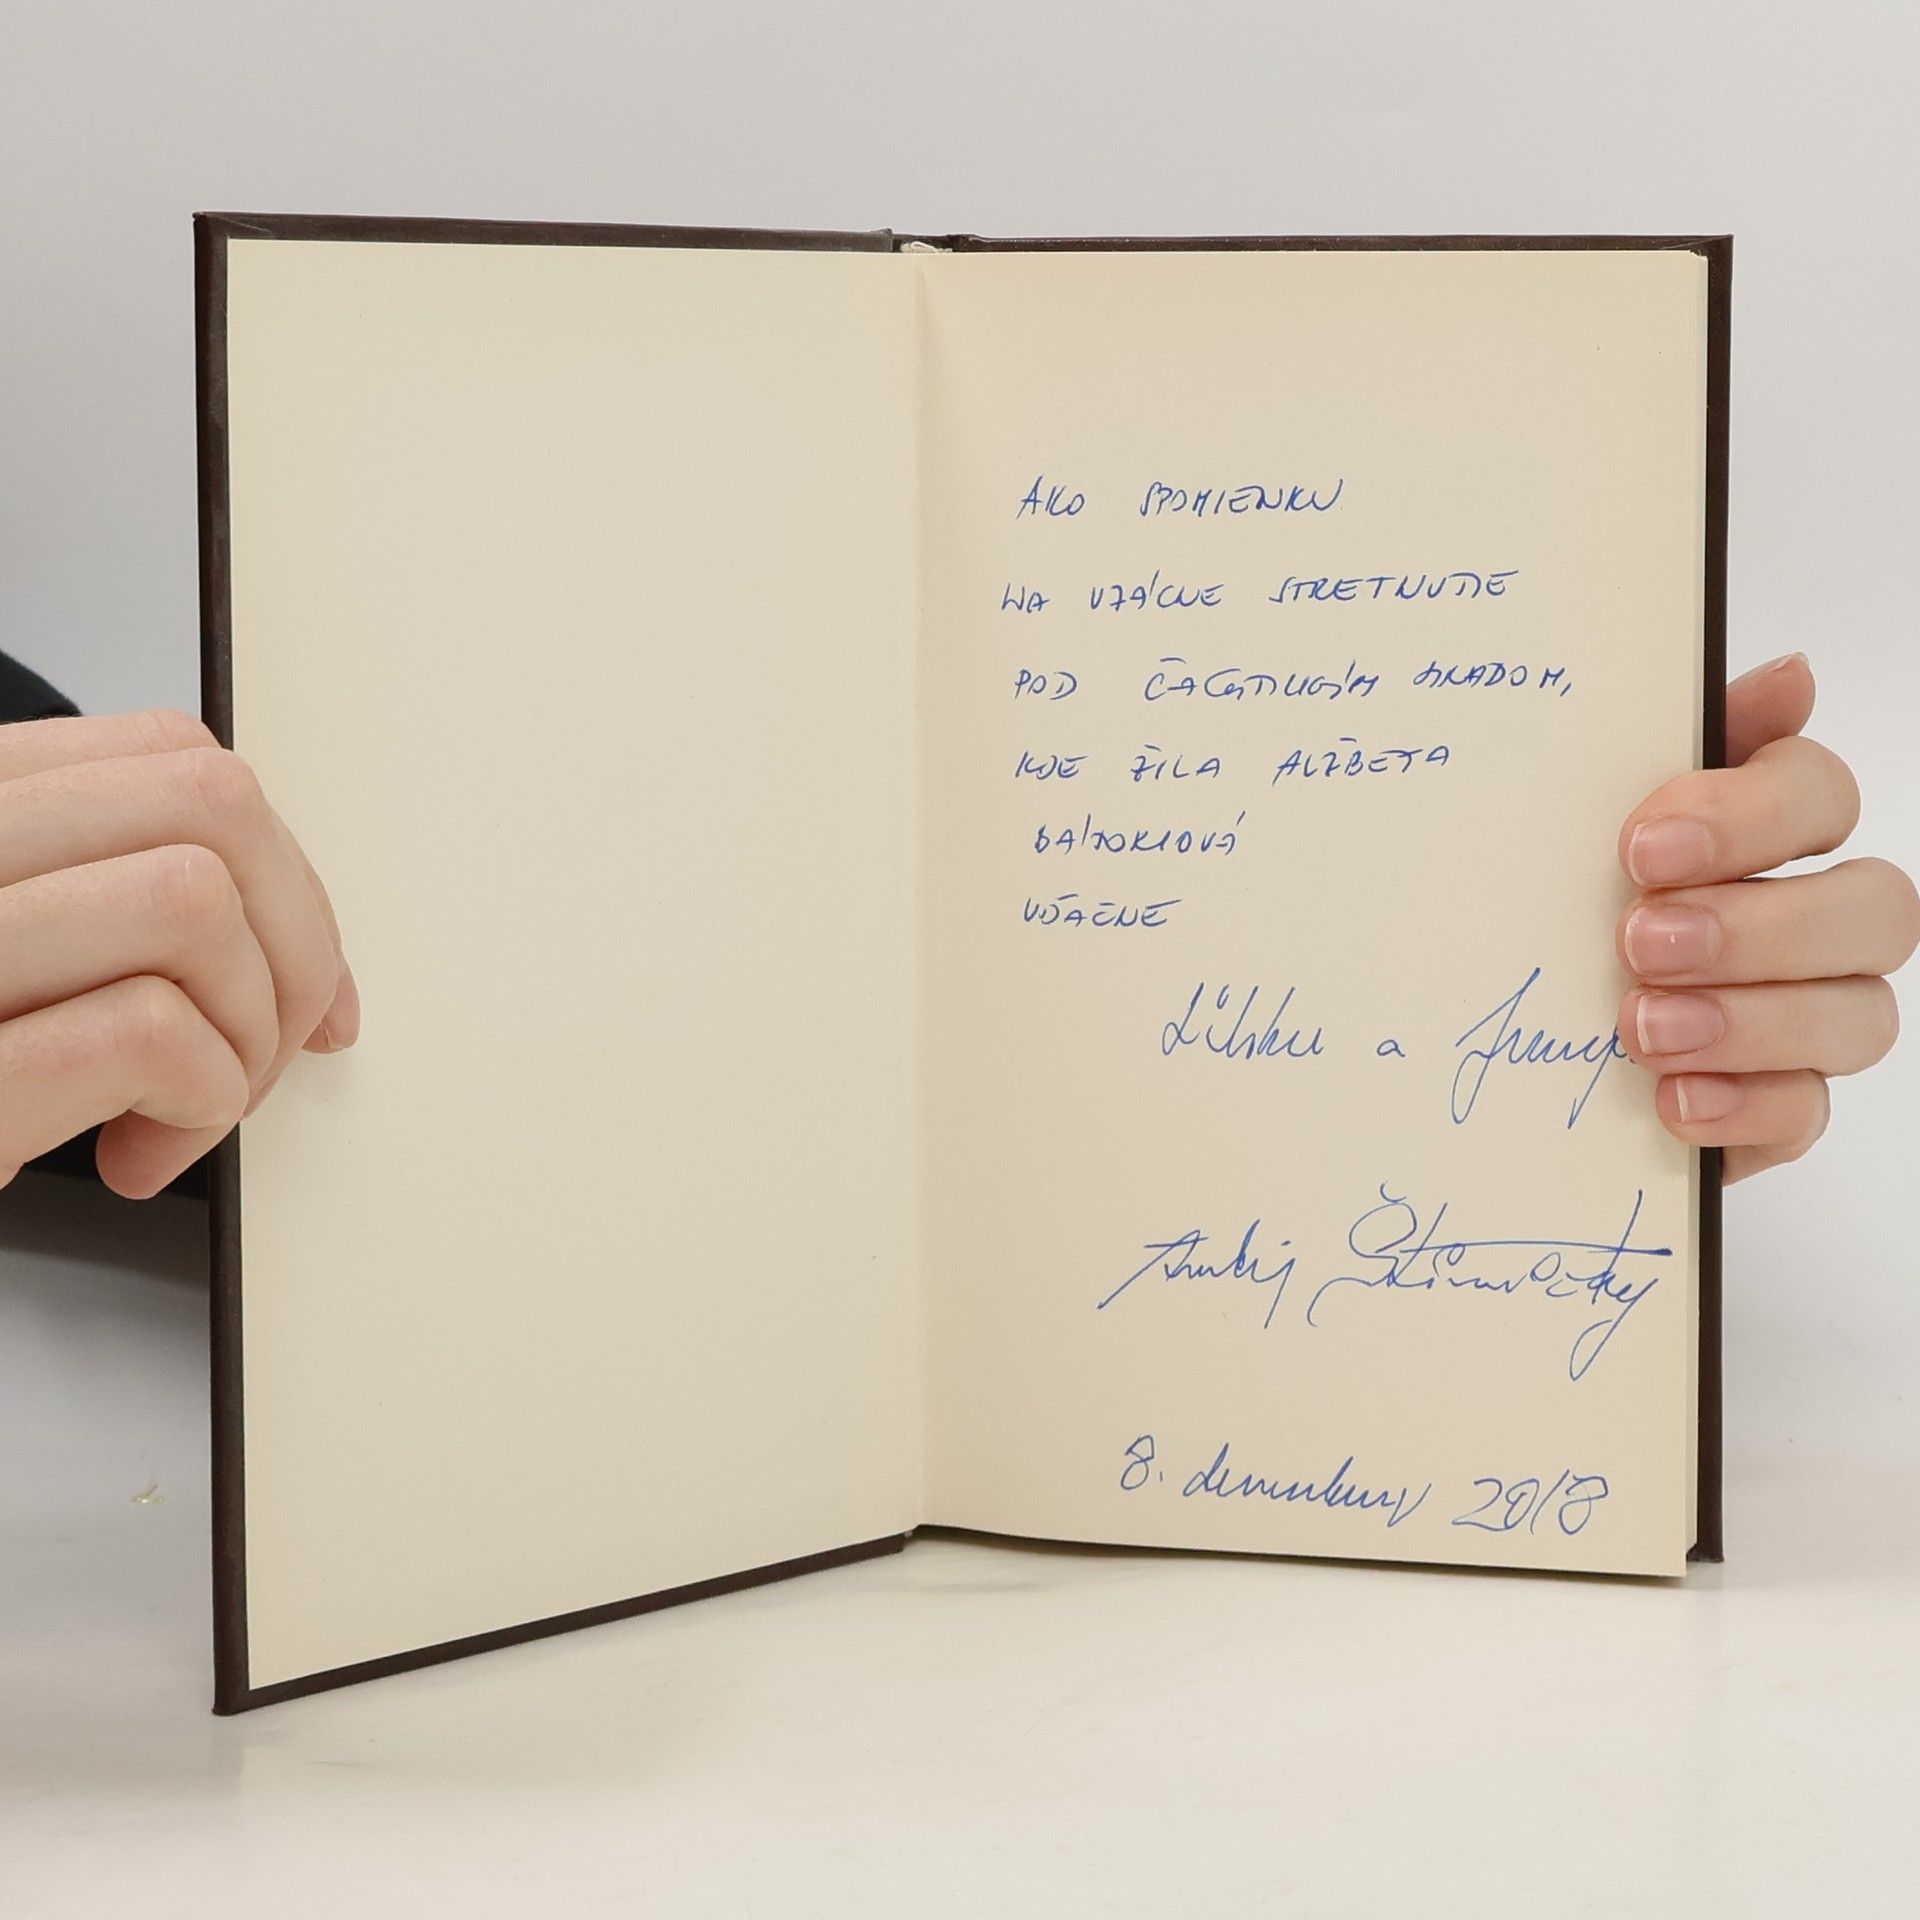 AKO SPOMIENKU
NA VZÁCNE STRETNUTIE
POD ČACHTICKÝM HRADOM,
KDE ŽILA ALŽBETA
BÁTORIOVÁ
VĎAČNE
a
Andrej Štiavnický
8. decembra 2018